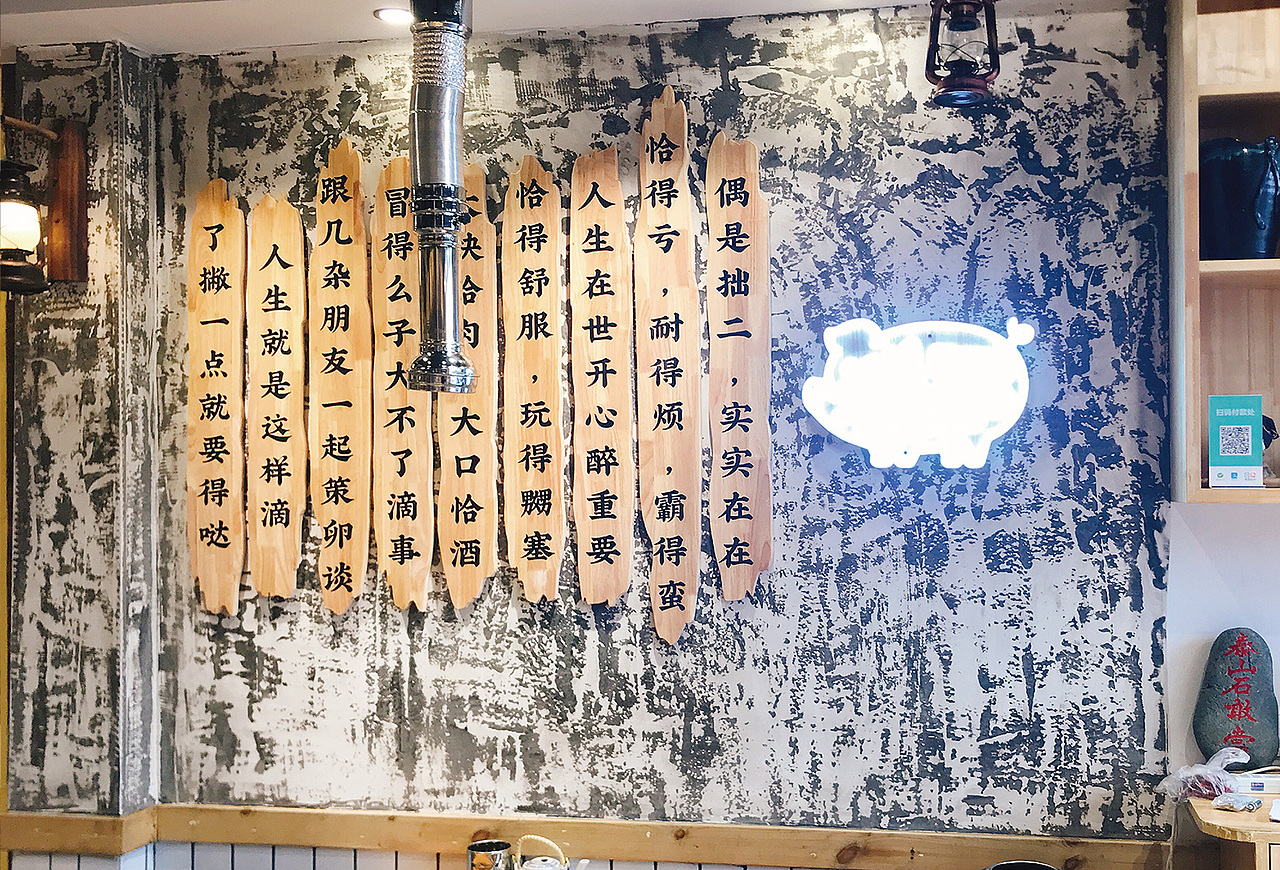 偶是拙二，实实在在
恰得亏，耐得烦，霸得蛮
人生在世开心醉重要
恰得舒服，玩得嬲塞
块恰肉 大口恰酒
冒得么子大不了滴事
跟几杂朋友一起策卵谈
人生就是这样滴
了撇一点就要得哒
扫码付款处
泰山石敢當